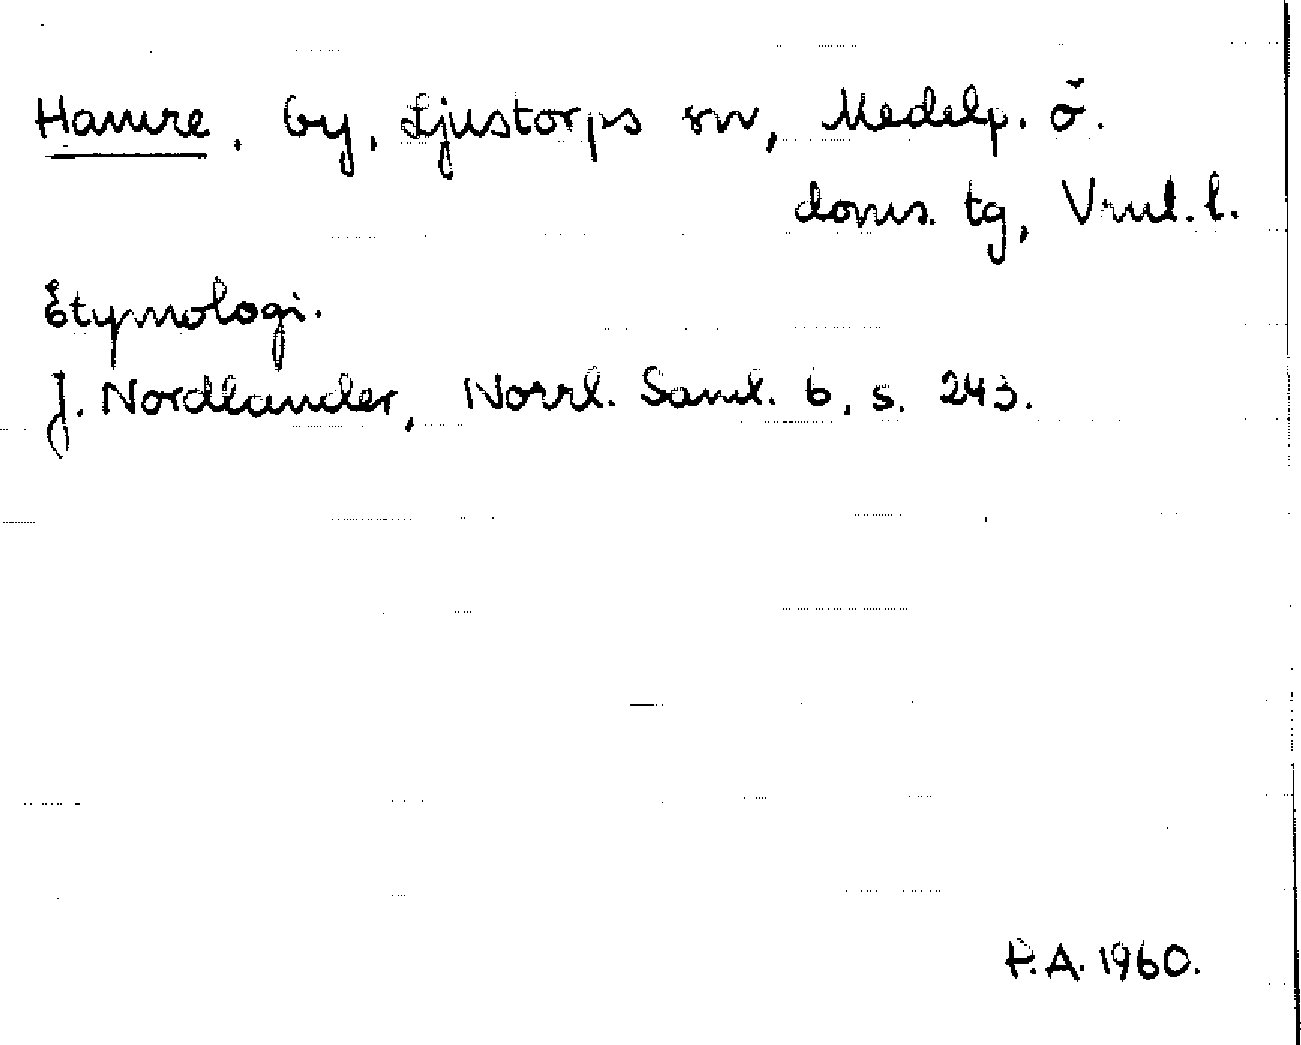 Hamre, by, Ljustorps sn, Medelp. ö.
doms. tg, Vnul. l.
Etymologi.
J. Nordlander, Norrl. Saml. 6, s. 243.
P.A. 1960.